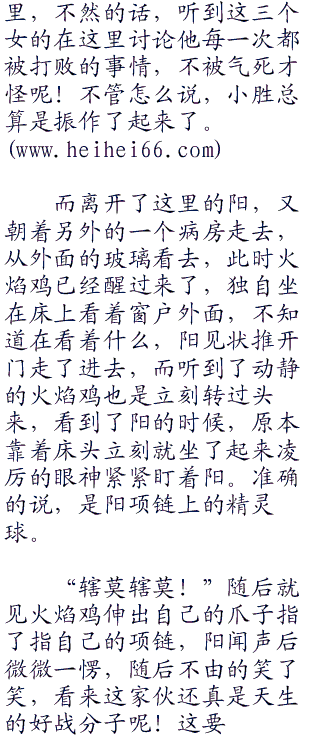 里，不然的话，听到这三个
女的在这里讨论他每一次都
被打败的事情，不被气死才
怪呢！不管怎么说，小胜总
算是振作了起来了。
(www.heihei66.com)
而离开了这里的阳，又
朝着另外的一个病房走去，
从外面的玻璃看去，此时火
焰鸡已经醒过来了，独自坐
在床上看着窗户外面，不知
道在看着什么，阳见状推开
门走了进去，而听到了动静
的火焰鸡也是立刻转过头
来，看到了阳的时候，原本
靠着床头立刻就坐了起来凌
厉的眼神紧紧盯着阳。准确
的说，是阳项链上的精灵
球。
“辖莫辖莫！”随后就
见火焰鸡伸出自己的爪子指
了指自己的项链，阳闻声后
微微一愣，随后不由的笑了
笑，看来这家伙还真是天生
的好战分子呢！这要